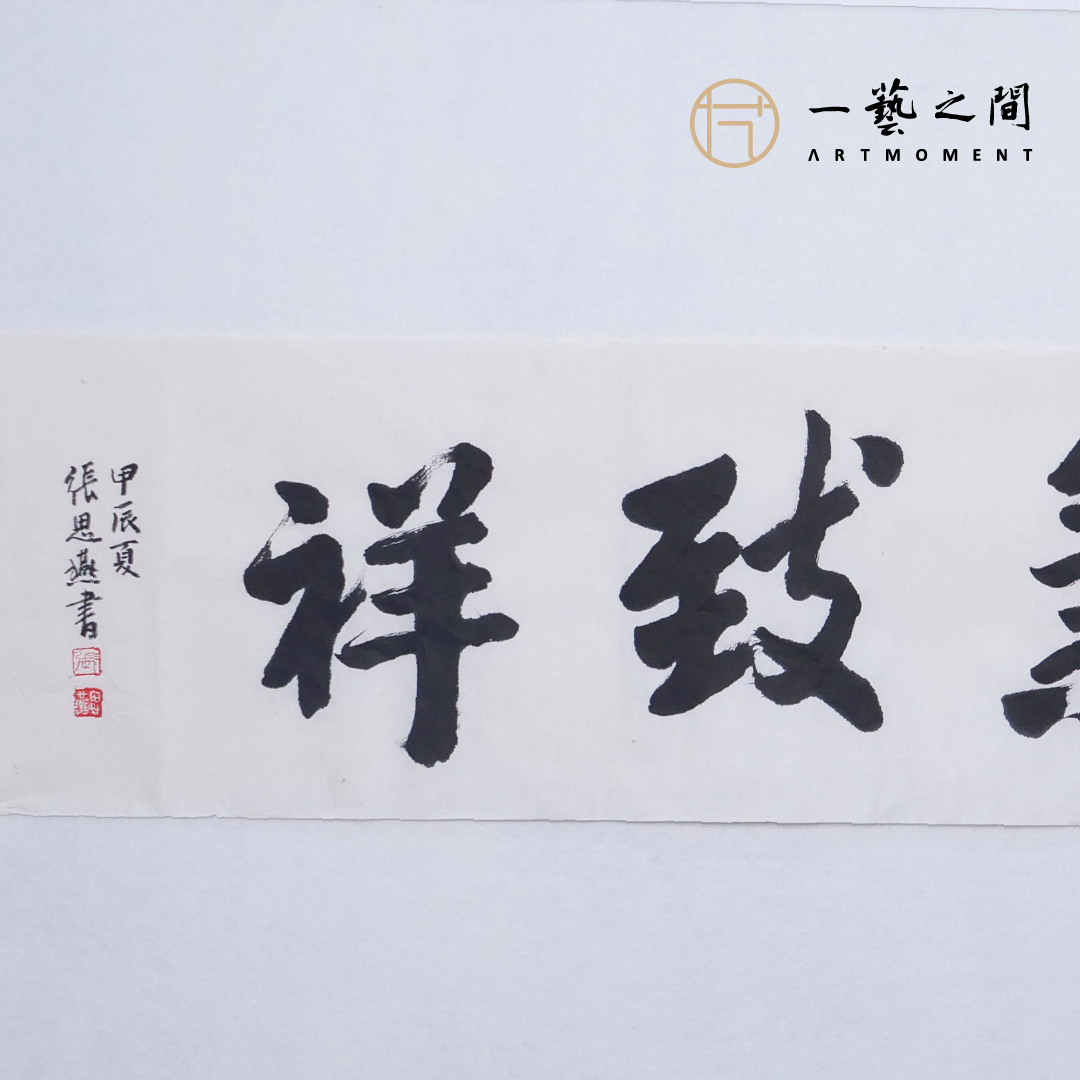 一藝之間
ARTMOMENT
致祥
甲辰夏
張思燕書
張
思燕